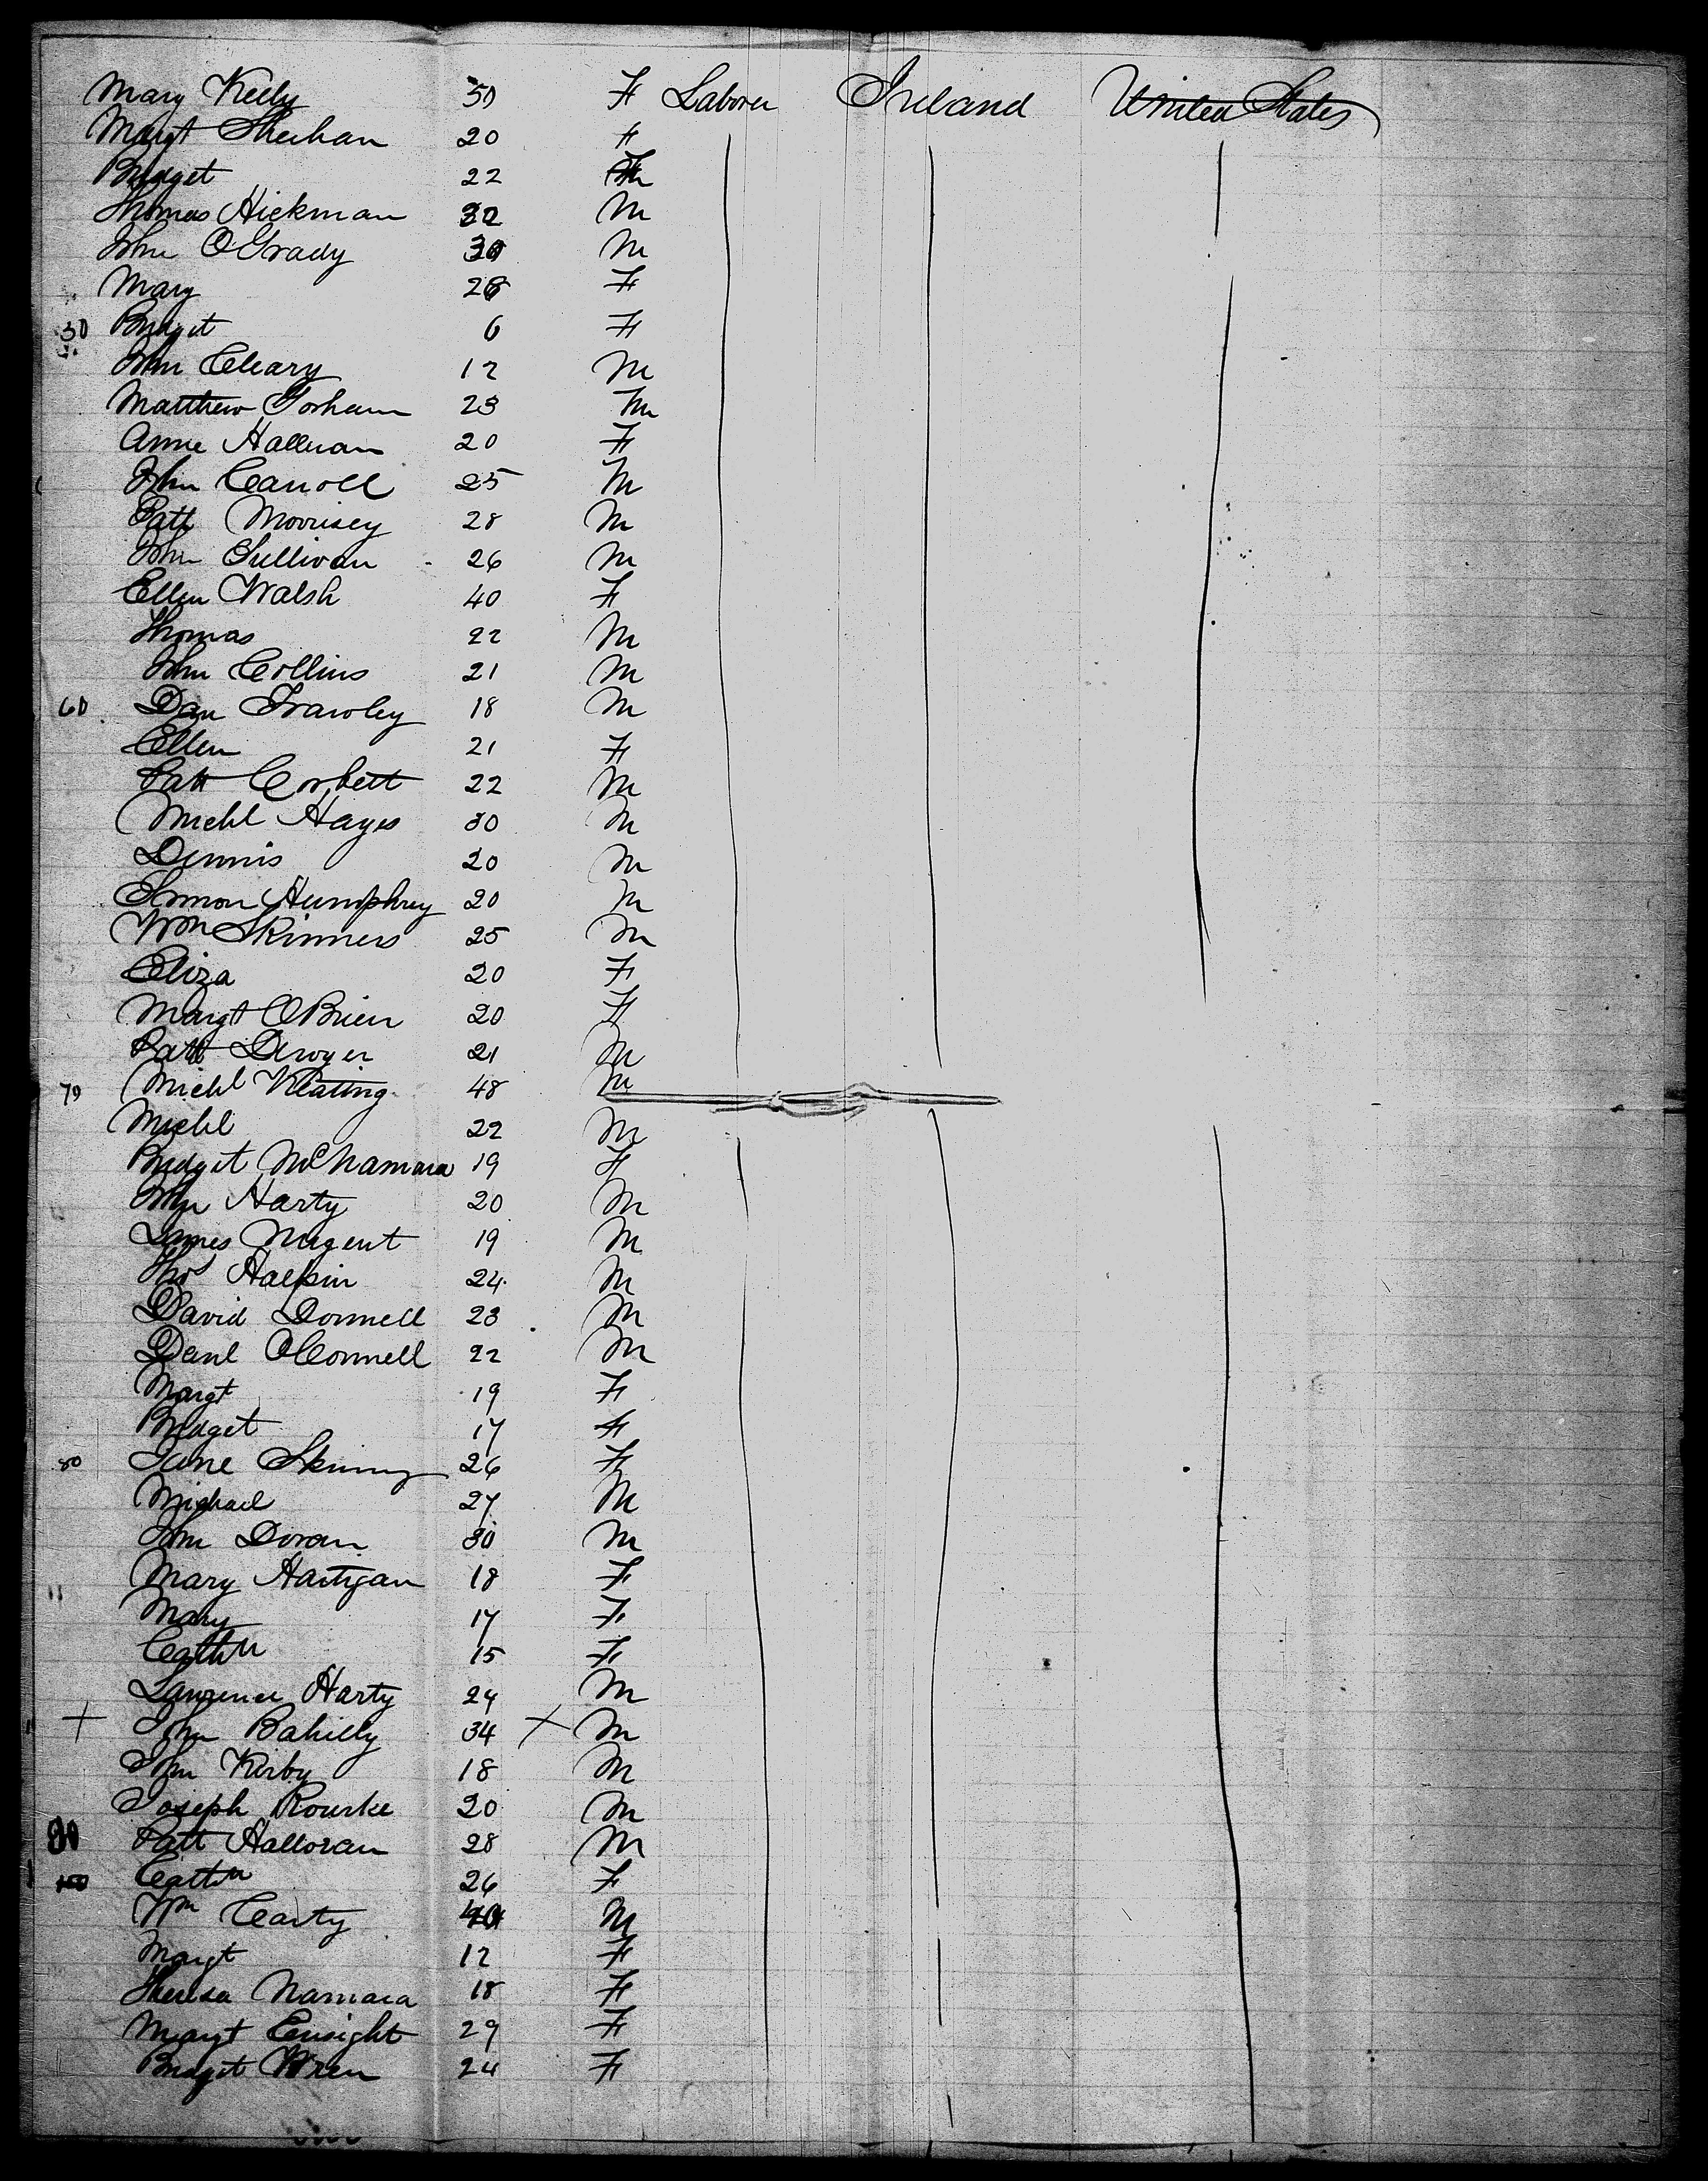 Mary Keely 50 F Laborer Ireland United States
Margt Sheehan 20 F
Bridget 22
Thomas Hickman 32 M
John O'Grady 30 M
Mary 28 F
50 Bridget 6 F
John Cleary 12 M
Matthew Gorham 23 M
Anne Hallinan 20 F
John Carroll 25 M
Patk Morrisey 28 M
John Sullivan 26 M
Ellen Walsh 40 F
Thomas 22 M
John Collins 21 M
60 Dan Frawley 18 M
Ellen 21 F
Patt Corbett 22 M
Michl Hayes 30 M
Dennis 20 M
Simon Humphrey 20 M
Wm Skinners 25 M
Eliza 20 F
Margt OBrien 20 F
Patt Dwyer 21 M
70 Michl Keating 48 M
Michl 22 M
Bridget McNamara 19 F
John Harty 20 M
James Nugent 19 M
Thos Halpin 24 M
David Donnell 23 M
Danl OConnell 22 M
Margt 19 F
Bridget 17 F
80 Jane Skinny 26 F
Michael 27 M
John Doran 30 M
Mary Hartigan 18 F
Mary 17 F
Cathn 15 F
Lawrence Harty 24 M
+ John Bahilly 34 + M
John Kirby 18 M
Joseph Rourke 20 M
90 Patt Halloran 28 M
100 Cathn 26 F
Wm Carty 40 M
Margt 12 F
Theresa Namara 18 F
Margt Enright 29 F
Bridget Wren 24 F